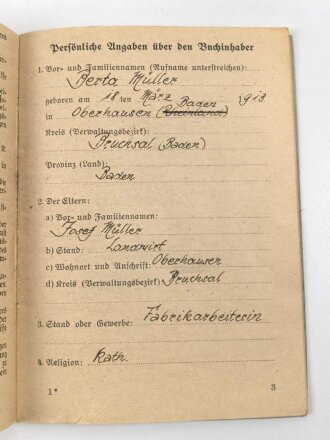 Persönliche Angaben über den Buchinhaber
1. Vor- und Familiennamen (Rufname unterstreichen):
Berta Müller
geboren am 18 ten März 1913
Baden
in Oberhausen (Rheinland)
Kreis (Verwaltungsbezirk):
Bruchsal (Baden)
Provinz (Land):
Baden
2. Der Eltern:
a) Vor- und Familiennamen:
Josef Müller
b) Stand: Landwirt
c) Wohnort und Anschrift: Oberhausen
d) Kreis (Verwaltungsbezirk) Bruchsal
3. Stand oder Gewerbe: Fabrikarbeiterin
4. Religion: Kath.
1*
3